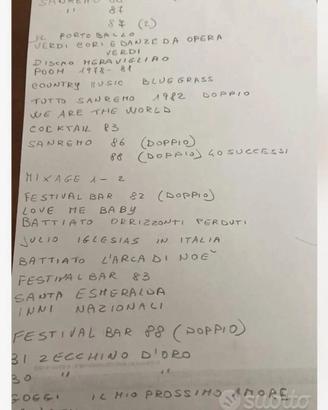 SANREMO 86
" 87
87 (2)
IL PORTOBALLO
VERDI CORI E DANZE DA OPERA
VERDI
DISCAO MERAVIGLIAO
POOH 1978-81
COUNTRY MUSIC BLUEGRASS
TUTTO SANREMO 1982 DOPPIO
WE ARE THE WORLD
COCKTAIL 83
SANREMO 86 (DOPPIO)
88 (DOPPIO) 40 SUCCESSI
MIXAGE 1-2
FESTIVAL BAR 82 (DOPPIO)
LOVE ME BABY
BATTIATO ORRIZZONTI PERDUTI
JULIO IGLESIAS IN ITALIA
BATTIATO L'ARCA DI NOE'
FESTIVAL BAR 83
SANTA ESMERALDA
INNI NAZIONALI
FESTIVAL BAR 88 (DOPPIO)
31 ZECCHINO D'ORO
30 " "
GOGGI IL MIO PROSSIMO AMORE
subito